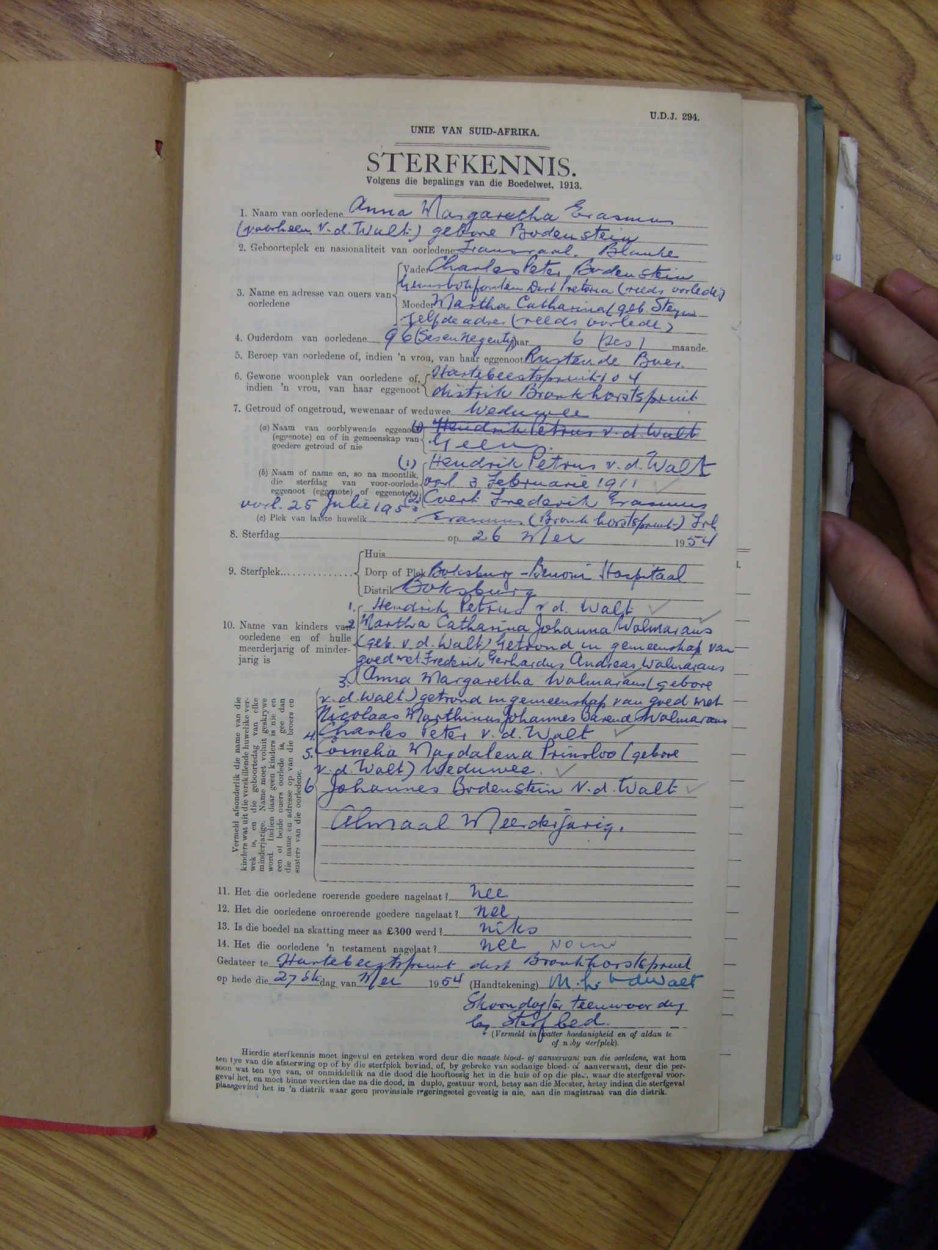 U.D.J. 294.
UNIE VAN SUID-AFRIKA.
STERFKENNIS.
Volgens die bepalings van die Boedelwet, 1913.
1. Naam van oorledene Anna Margaretha Erasmus
(voorheen v.d. Walt) gebore Bodenstein
2. Geboorteplek en nasionaliteit van oorledene Transvaal. Blanke
3. Name en adresse van ouers van oorledene
Vader Charles Peter Bodenstein
Dist Pretoria (reeds oorlede)
Moeder Martha Catharina (geb. Steyn
Selfde adres (reeds oorlede)
4. Ouderdom van oorledene 96 (Sesennegentig) jaar 6 (ses) maande
5. Beroep van oorledene of, indien 'n vrou, van haar eggenoot Rustende Boer
6. Gewone woonplek van oorledene of, indien 'n vrou, van haar eggenoot
Hartebeestspruit 104
distrik Bronkhorstspruit
7. Getroud of ongetroud, wewenaar of weduwee Weduwee
(a) Naam van oorblywende eggenoot (eggenote) en of in gemeenskap van goedere getroud of nie
(1) Hendrik Petrus v.d. Walt
Geen
(b) Naam of name en, so na moontlik, die sterfdag van voor-oorlede eggenoot (eggenote) of eggenote(s)
(1) Hendrik Petrus v.d. Walt
oorl 3 Februarie 1911
(2) Coert Frederik Erasmus
oorl. 25 Julie 195
(c) Plek van laaste huwelik Erasmus (Bronkhorstspruit) Tvl
8. Sterfdag op 26 Mei 1954
9. Sterfplek
Huis
Dorp of Plek Boksburg-Benoni Hospitaal
Distrik Boksburg
10. Name van kinders van oorledene en of hulle meerderjarig of minderjarig is
1. Hendrik Petrus v.d. Walt
2 Martha Catharina Johanna Wolmarans
(geb. v.d. Walt) Getroud in gemeenskap van
goed met Frederik Gerhardus Andreas Wolmarans
3. Anna Margaretha Wolmarans (gebore
v.d. Walt) getroud in gemeenskap van goed met
Nicolaas Marthinus Johannes Barend Wolmarans
4 Charles Peter v.d. Walt
5. Cornelia Magdalena Prinsloo (gebore
v.d. Walt) Weduwee.
6 Johannes Bodenstein v.d. Walt
Almaal Meerderjarig.
Vermeld afsonderlik die name van die
kinders wat uit die verskillende huwelike verwek
is, en die geboortedag van elke
minderjarige. Name moet voluit geskrywe
word. Indien daar geen kinders is nie en
een of beide ouers oorlede is, gee dan
die name en adresse op van die broers en
susters van die oorledene.
11. Het die oorledene roerende goedere nagelaat? nee
12. Het die oorledene onroerende goedere nagelaat? nee
13. Is die boedel na skatting meer as £300 werd? niks
14. Het die oorledene 'n testament nagelaat? nee
Gedateer te Hartebeestspruit dist Bronkhorstspruit
op hede die 27ste dag van Mei 1954 (Handtekening)
Skoondogter teenwoordig
by Sterfbed.
(Vermeld in watter hoedanigheid en of aldan te
of n.by sterfplek).
Hierdie sterfkennis moet ingevul en geteken word deur die naaste bloed- of aanverwant van die oorledene, wat hom
ten tye van die afsterwing op of by die sterfplek bevind, of, by gebreke van sodanige bloed- of aanverwant, deur die persoon
wat ten tye van, of onmiddellik na die dood die hooftoesig het in die huis of op die plek, waar die sterfgeval voorgeval
het, en moet binne veertien dae na die dood, in duplo, gestuur word, hetsy aan die Meester, hetsy indien die sterfgeval
plaasgevind het in 'n distrik waar geen provinsiale regeringsetel gevestig is nie, aan die magistraat van die distrik.